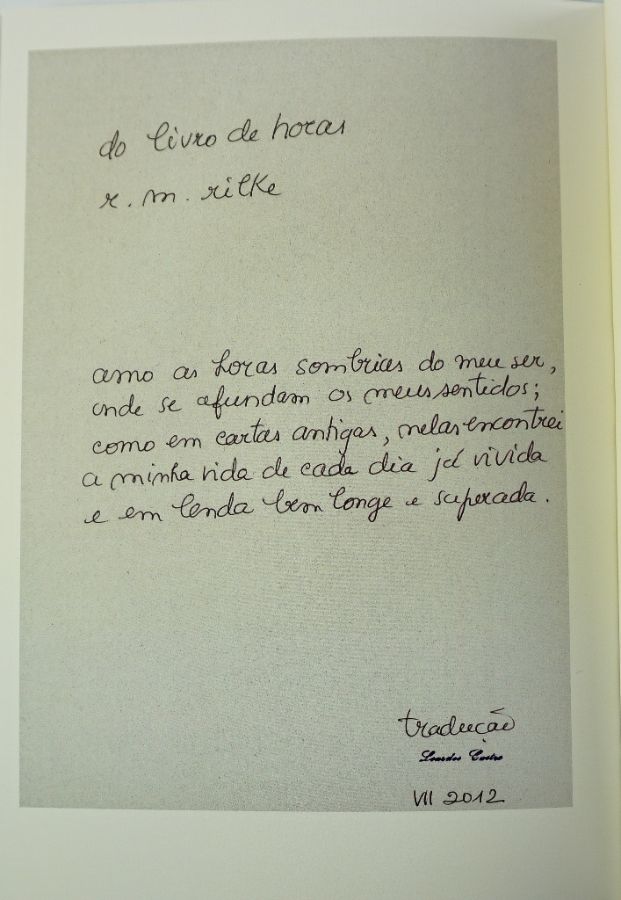 do livro de horas
r. m. rilke
amo as horas sombrias do meu ser,
onde se afundam os meus sentidos;
como em cartas antigas, nelas encontrei
a minha vida de cada dia já vivida
e em lenda bem longe e superada.
tradução
Lourdes Castro
VII 2012